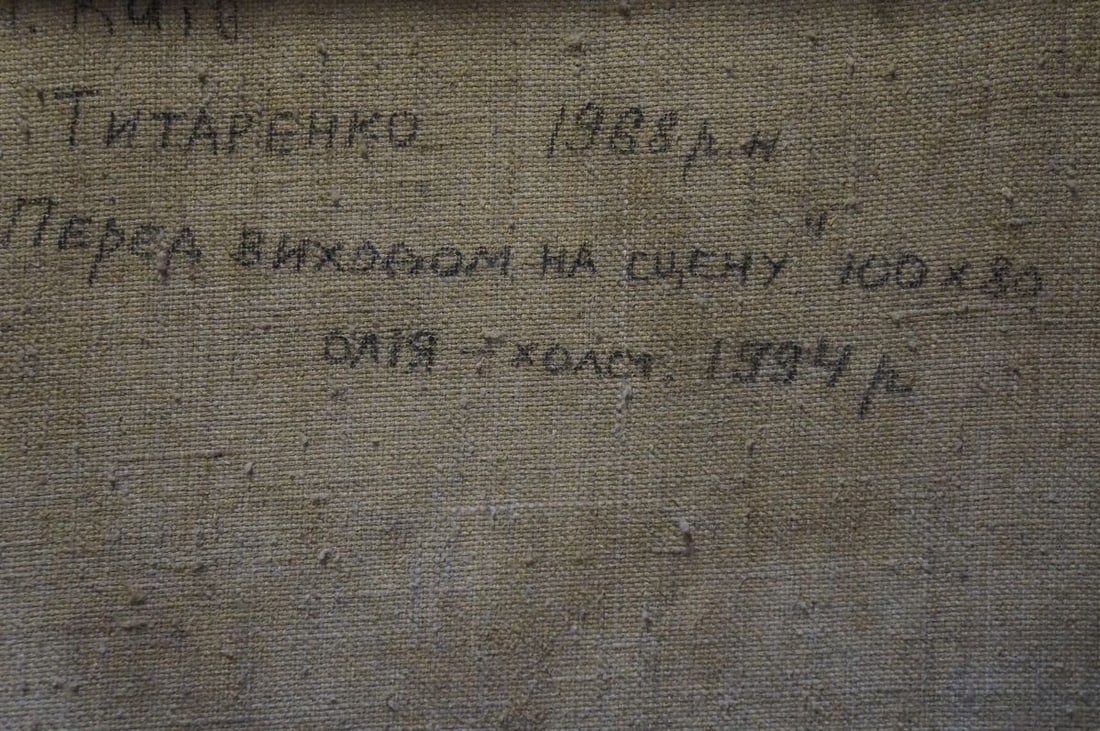 Титаренко 1968 р.н
Перед виходом на сцену" 100х80
олія - холст. 1994 р